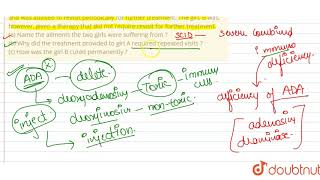 and was advised to revisit periodically for further treatment. The girl B was,
however, given a therapy that did not require revisit for further treatment.
(a) Name the ailments the two girls were suffering from ?
(b) Why did the treatment provided to girl A required repeated visits ?
(c) How was the girl B cured permanently ?
SCID → Severe combined
immuno
deficiency.
ADA → delete
deoxyadenosin → Toxic - immune cells
deoxyinosin → non-toxic.
inject
injection.
deficiency of ADA
[adenosin
deaminase.]
doubtnut